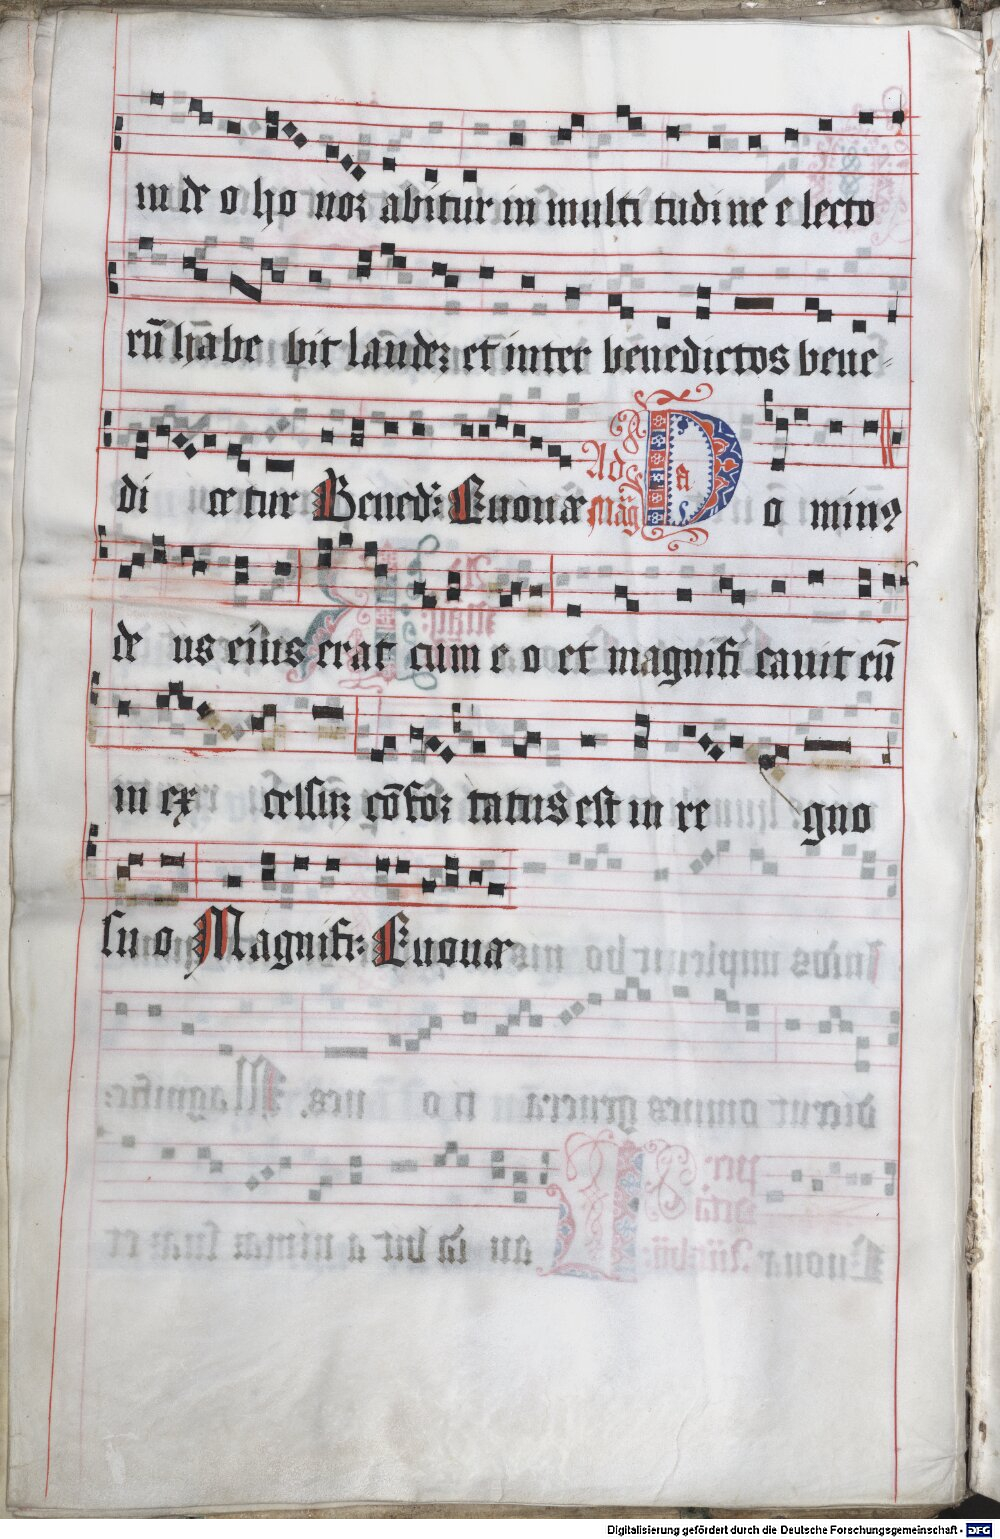 in de o ho noꝛ abitur in multi tudi ne e lecto
rū habe bit laudeꝫ et inter benedictos bene⸗
di ce tur Bened: Euouae Ad Mag Da o minꝰ
de us eius erat cum e o et magnifi cauit eū
in ex celsiꝫ cōfoꝛ tatus est in re gno
su o Magnifi: Euouae
Digitalisierung gefördert durch die Deutsche Forschungsgemeinschaft - DFG